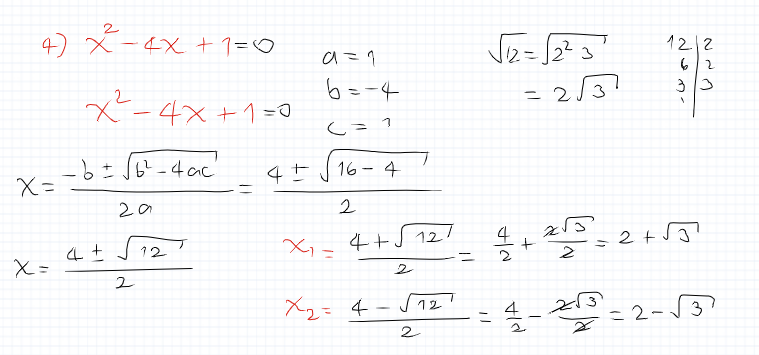 4) x² - 4x + 1 = 0
x² - 4x + 1 = 0
a = 1
b = -4
c = 1
√12 = √(2² 3)
= 2√3
12 | 2
6 | 2
3 | 3
1 |
x = (-b ± √(b² - 4ac))/(2a) = (4 ± √(16 - 4))/2
x = (4 ± √12)/2
x₁ = (4 + √12)/2 = 4/2 + (2√3)/2 = 2 + √3
x₂ = (4 - √12)/2 = 4/2 - (2√3)/2 = 2 - √3